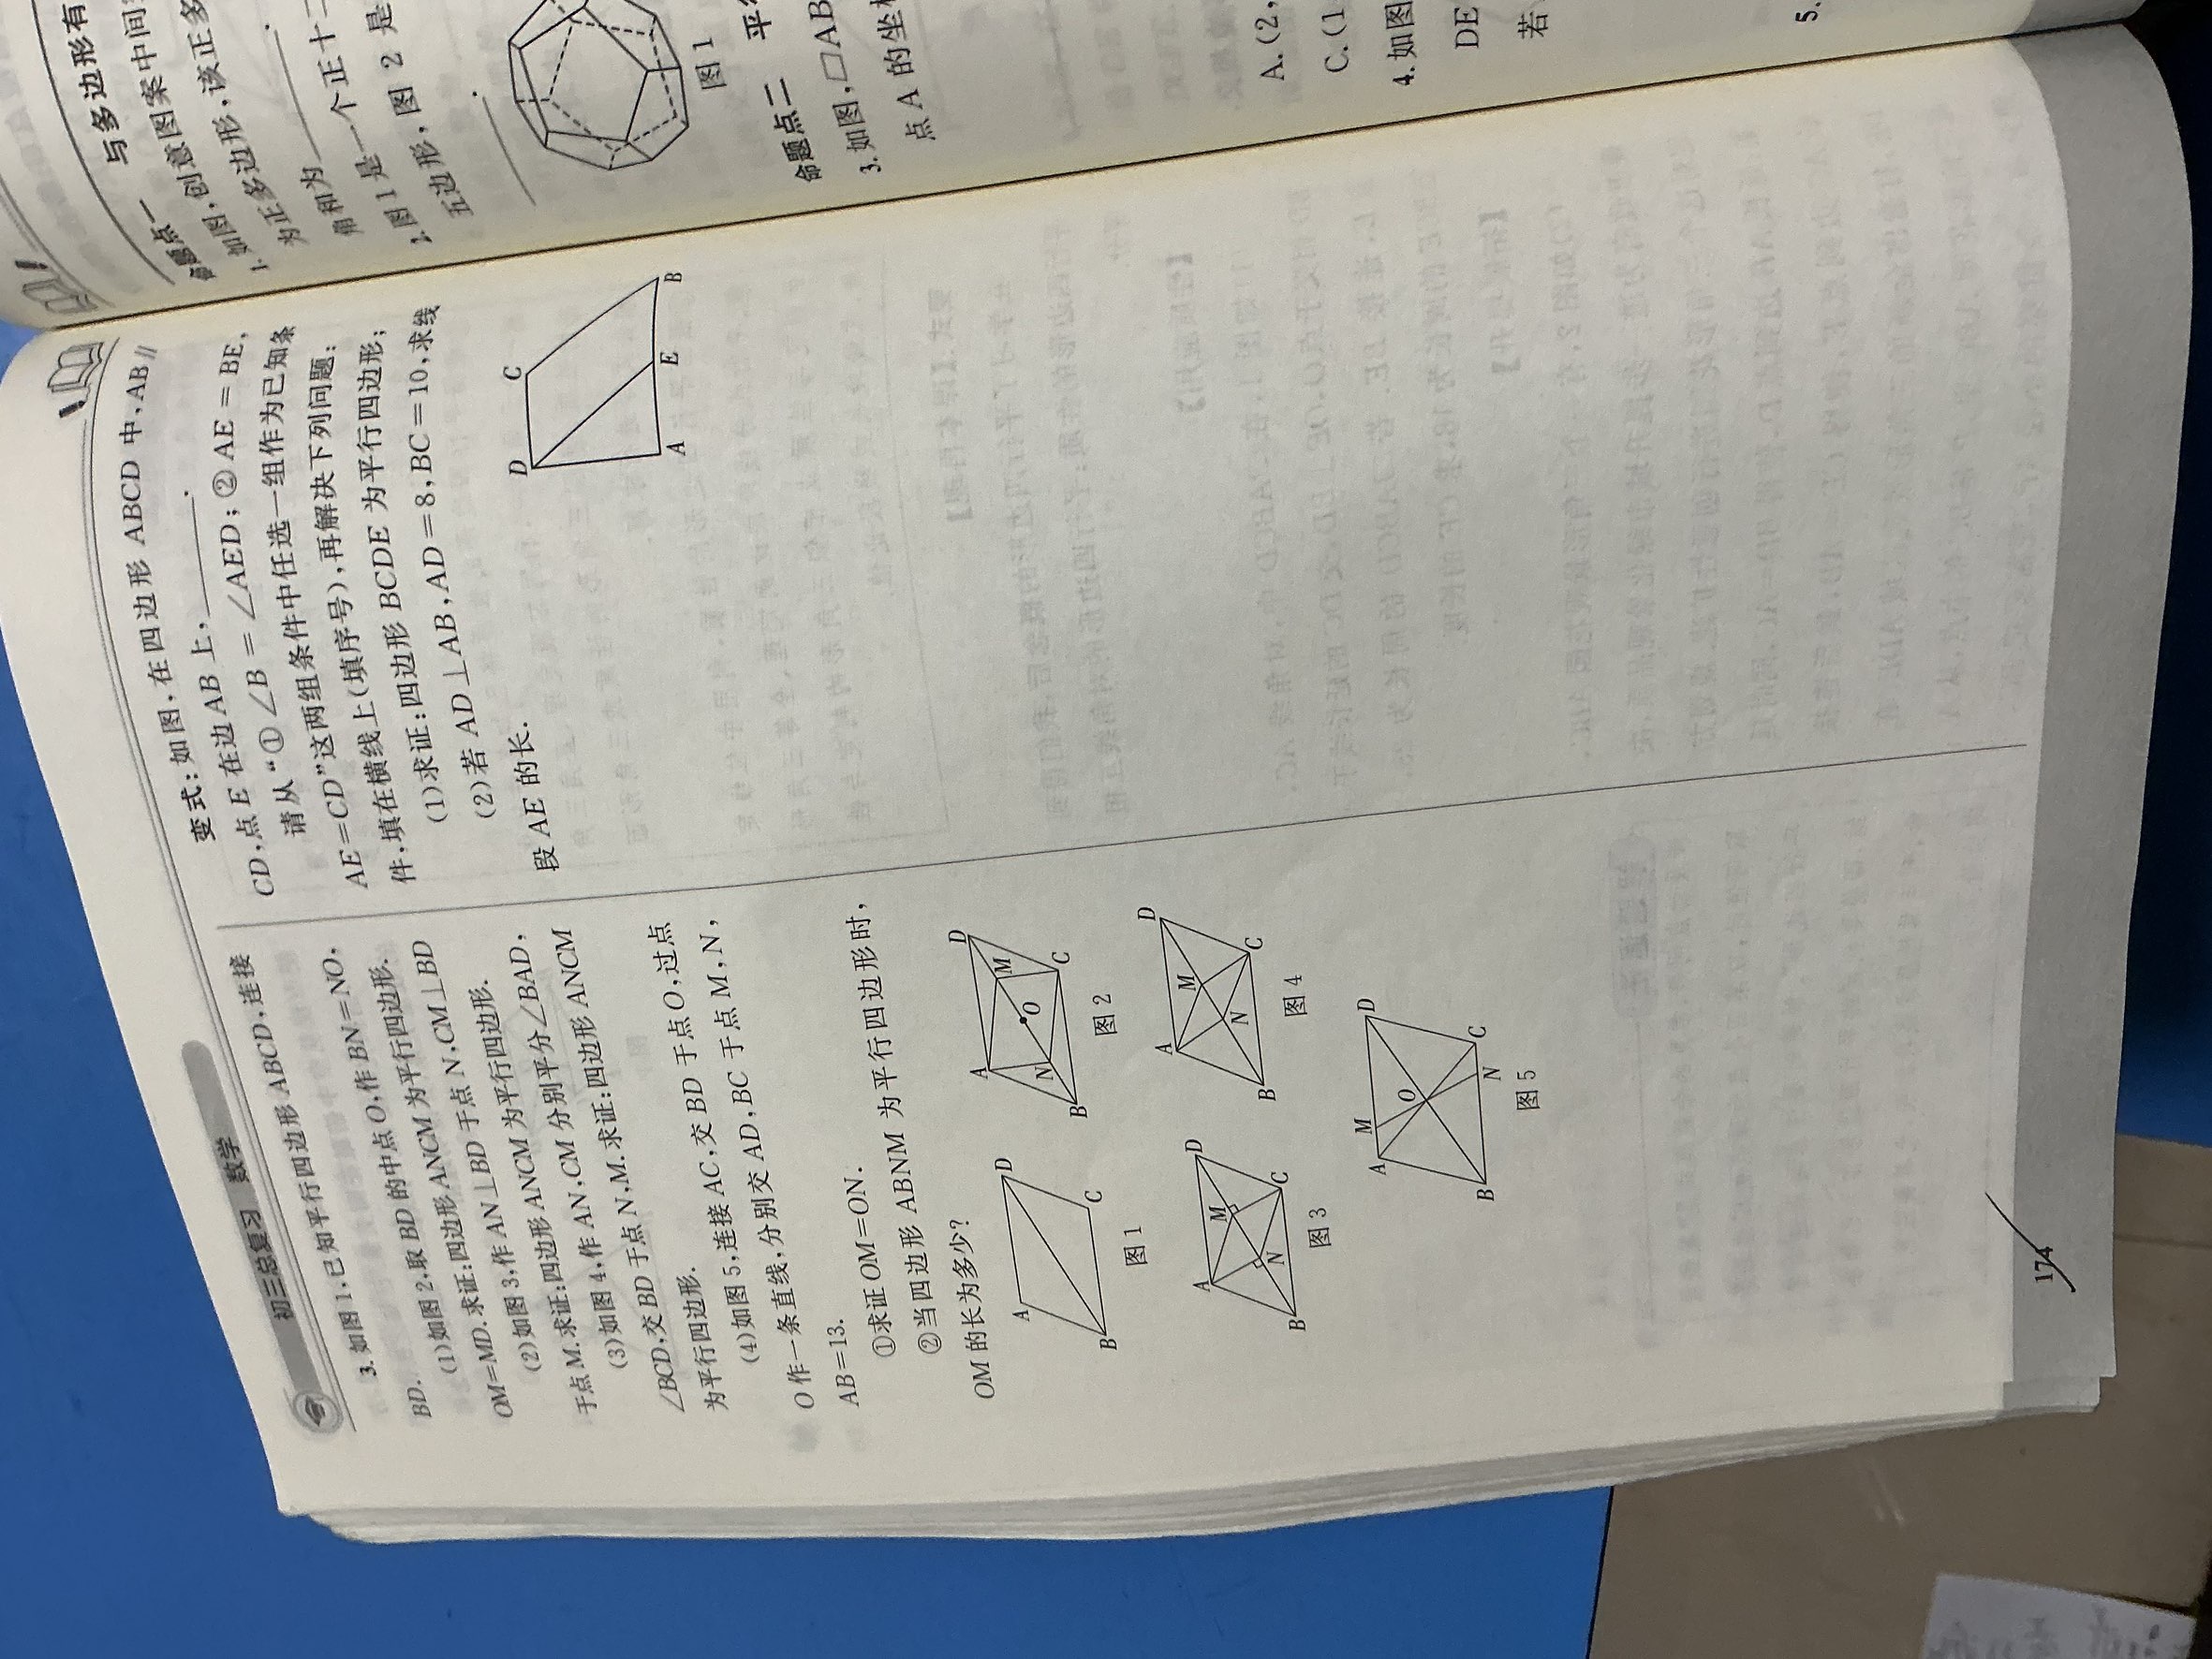 初三总复习 数学
3. 如图1,已知平行四边形ABCD,连接
BD.
(1)如图2,取BD的中点O,作BN=NO,
OM=MD.求证:四边形ANCM为平行四边形.
(2)如图3,作AN⊥BD于点N,CM⊥BD
于点M.求证:四边形ANCM为平行四边形.
(3)如图4,作AN,CM分别平分∠BAD,
∠BCD,交BD于点N,M.求证:四边形ANCM
为平行四边形.
(4)如图5,连接AC,交BD于点O,过点
O作一条直线,分别交AD,BC于点M,N,
AB=13.
①求证OM=ON.
②当四边形ABNM为平行四边形时,
OM的长为多少?
A D B C
图1
A D N O M B C
图2
A M D N B C
图3
A M D N B C
图4
A M D O B N C
图5
变式:如图,在四边形ABCD中,AB∥
CD,点E在边AB上,______.
请从“①∠B=∠AED;②AE=BE,
AE=CD”这两组条件中任选一组作为已知条
件,填在横线上(填序号),再解决下列问题:
(1)求证:四边形BCDE为平行四边形;
(2)若AD⊥AB,AD=8,BC=10,求线
段AE的长.
D C A E B
174
与多边形有
命题点一
1. 如图,创意图案中间
为正多边形,该正多
角和为______.
2. 图1是一个正十二
五边形,图2是
______.
图1
命题点二 平
3. 如图,□AB
点A的坐
A.(2,
C.(1
4. 如图
DE
若
5.